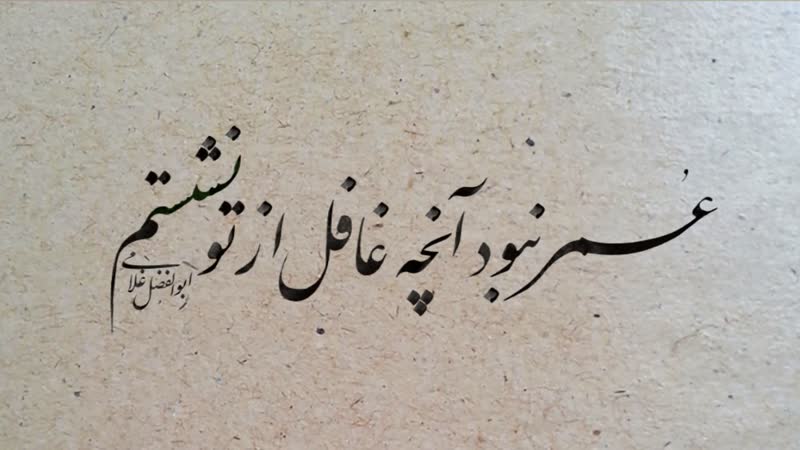 عُمر نبود آنچه غافل از تو نشستم
ابوالفضل غلامی